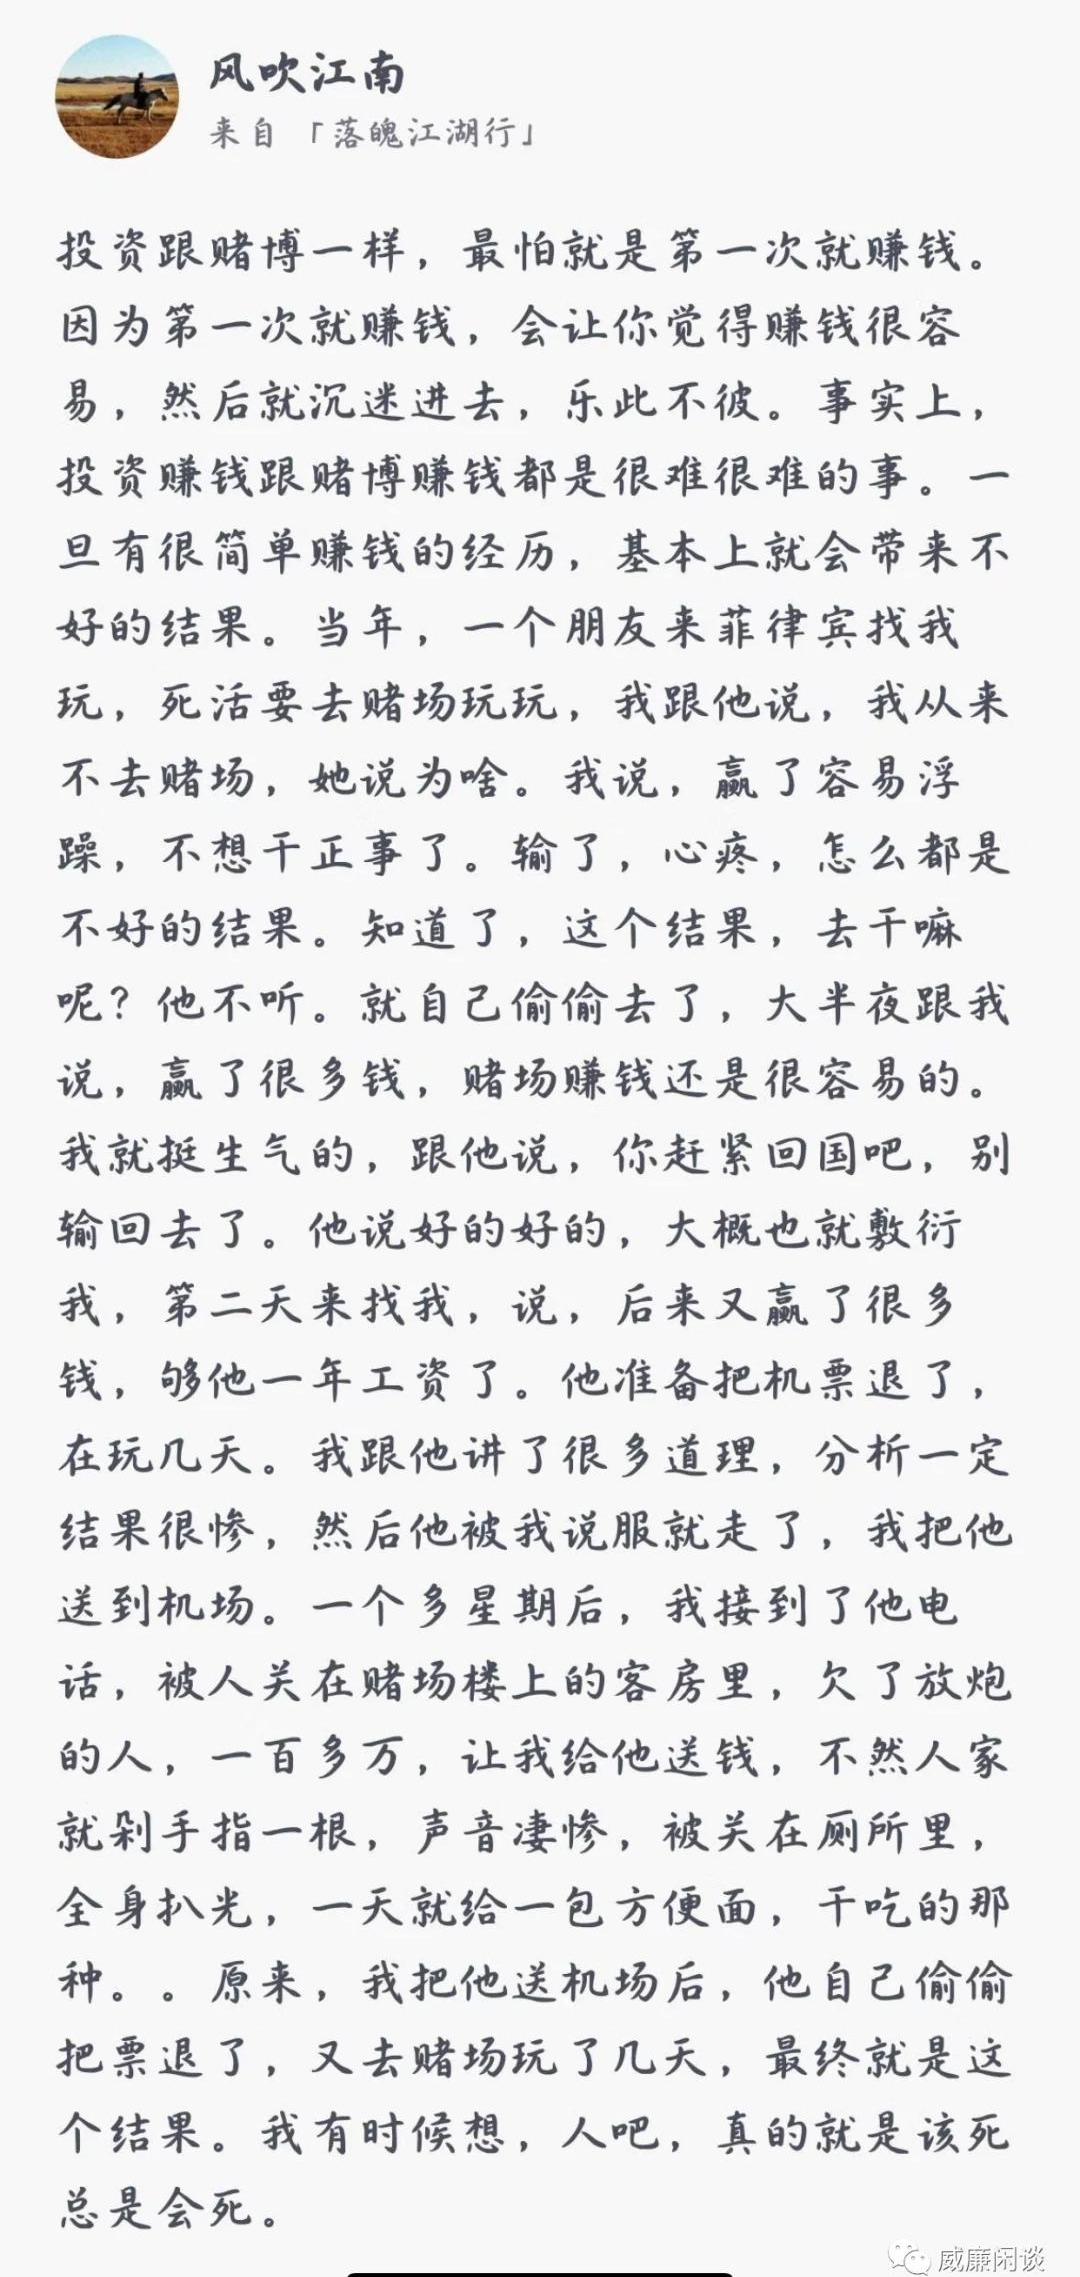 风吹江南
来自「落魄江湖行」
投资跟赌博一样，最怕就是第一次就赚钱。
因为第一次就赚钱，会让你觉得赚钱很容
易，然后就沉迷进去，乐此不彼。事实上，
投资赚钱跟赌博赚钱都是很难很难的事。一
旦有很简单赚钱的经历，基本上就会带来不
好的结果。当年，一个朋友来菲律宾找我
玩，死活要去赌场玩玩，我跟他说，我从来
不去赌场，她说为啥。我说，赢了容易浮
躁，不想干正事了。输了，心疼，怎么都是
不好的结果。知道了，这个结果，去干嘛
呢？他不听。就自己偷偷去了，大半夜跟我
说，赢了很多钱，赌场赚钱还是很容易的。
我就挺生气的，跟他说，你赶紧回国吧，别
输回去了。他说好的好的，大概也就敷衍
我，第二天来找我，说，后来又赢了很多
钱，够他一年工资了。他准备把机票退了，
在玩几天。我跟他讲了很多道理，分析一定
结果很惨，然后他被我说服就走了，我把他
送到机场。一个多星期后，我接到了他电
话，被人关在赌场楼上的客房里，欠了放炮
的人，一百多万，让我给他送钱，不然人家
就剁手指一根，声音凄惨，被关在厕所里，
全身扒光，一天就给一包方便面，干吃的那
种。。原来，我把他送机场后，他自己偷偷
把票退了，又去赌场玩了几天，最终就是这
个结果。我有时候想，人吧，真的就是该死
总是会死。
威廉闲谈